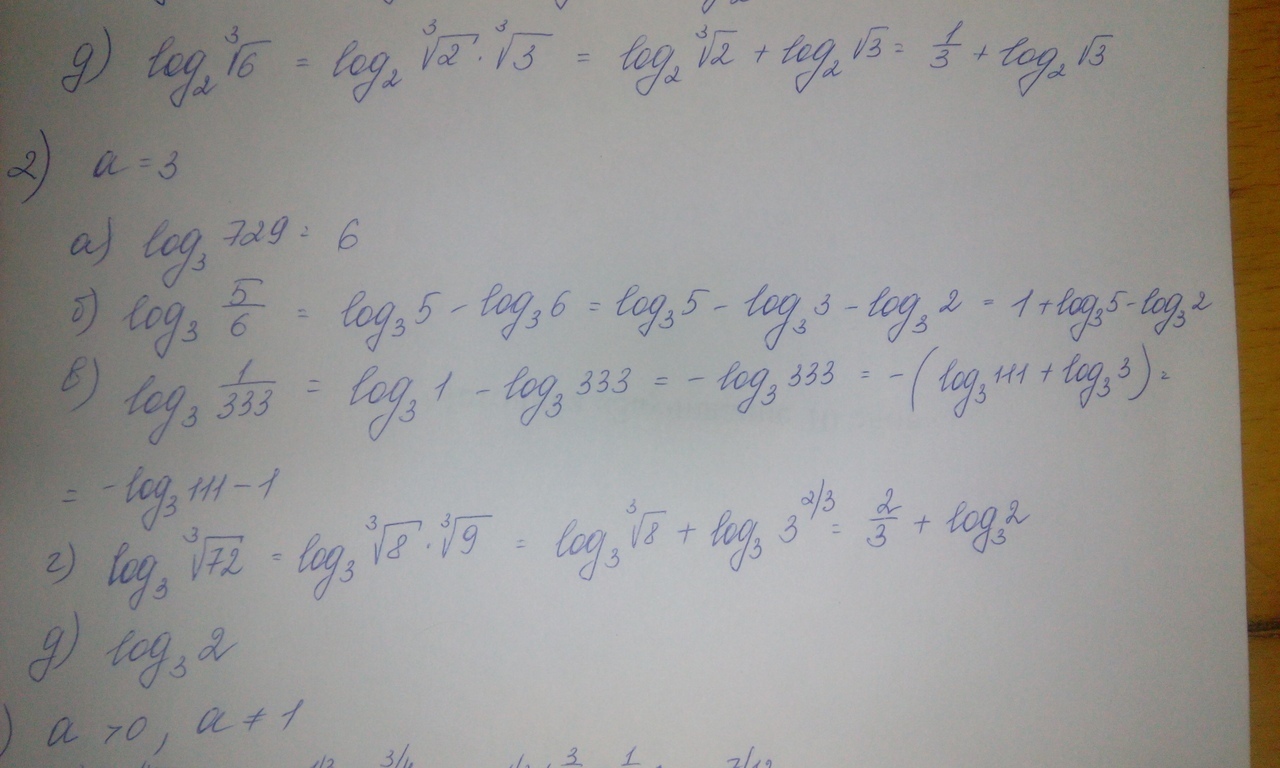 д) log₂ ∛6 = log₂ ∛2 · ∛3 = log₂ ∛2 + log₂ √3 = 1/3 + log₂ √3
2) a = 3
а) log₃ 729 = 6
б) log₃ 5/6 = log₃ 5 - log₃ 6 = log₃ 5 - log₃ 3 - log₃ 2 = 1 + log₃ 5 - log₃ 2
в) log₃ 1/333 = log₃ 1 - log₃ 333 = - log₃ 333 = - (log₃ 111 + log₃ 3) =
= - log₃ 111 - 1
г) log₃ ∛72 = log₃ ∛8 · ∛9 = log₃ ∛8 + log₃ 3^2/3 = 2/3 + log₃ 2
д) log₃ 2
) a > 0, a ≠ 1